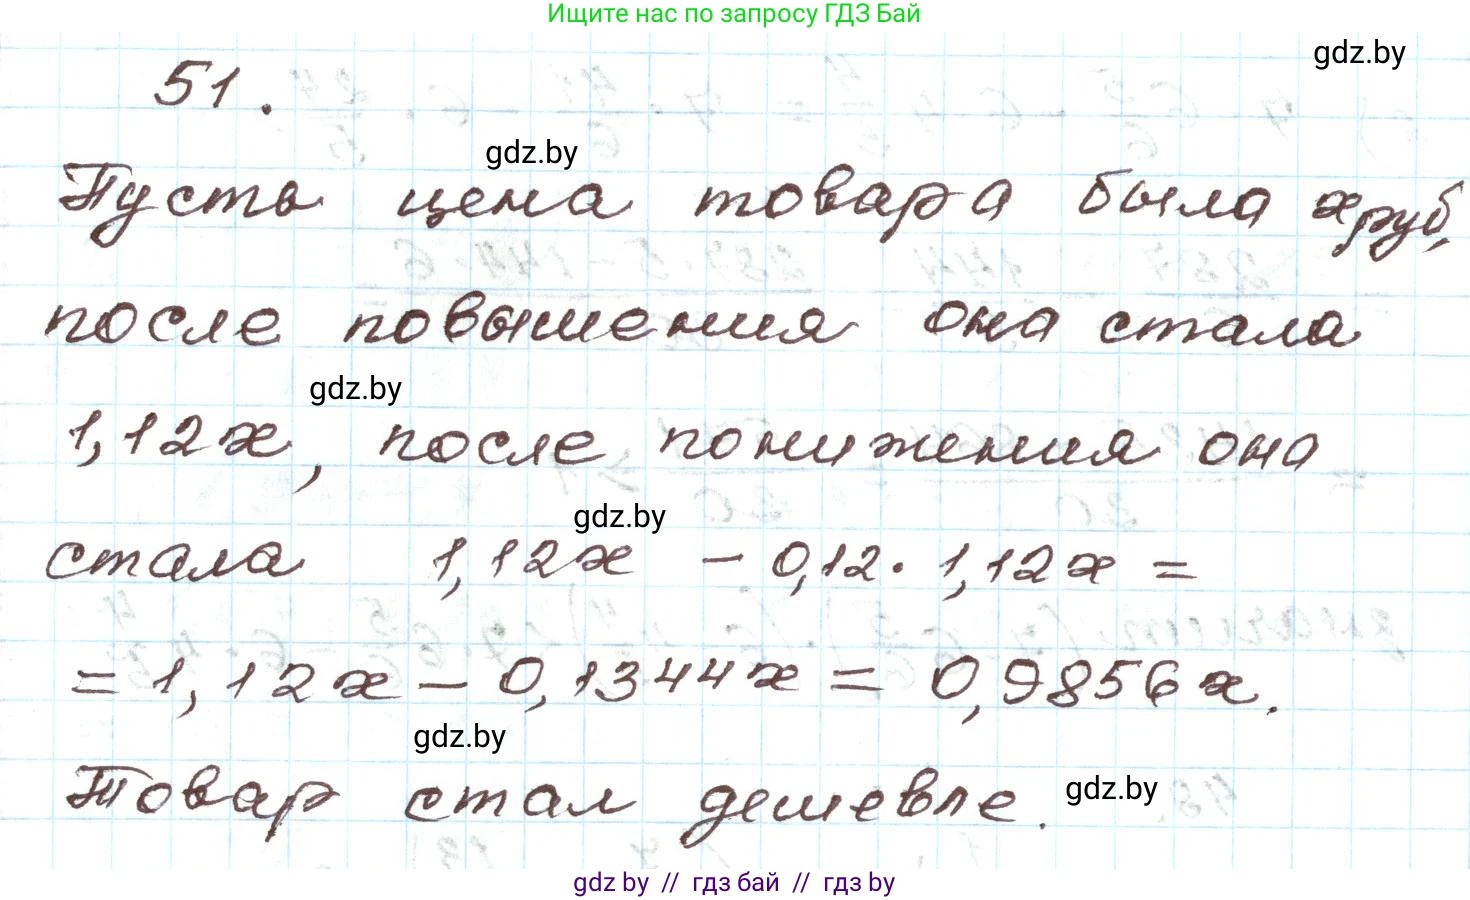 Ищите нас по запросу ГДЗ Бай
gdz.by
51.
gdz.by
Пусть цена товара была x руб,
после повышения она стала
gdz.by
1,12x, после понижения она
gdz.by
стала 1,12x - 0,12 · 1,12x =
= 1,12x - 0,1344x = 0,9856x.
gdz.by
Товар стал дешевле.
gdz.by
gdz by // гдз бай // гдз by